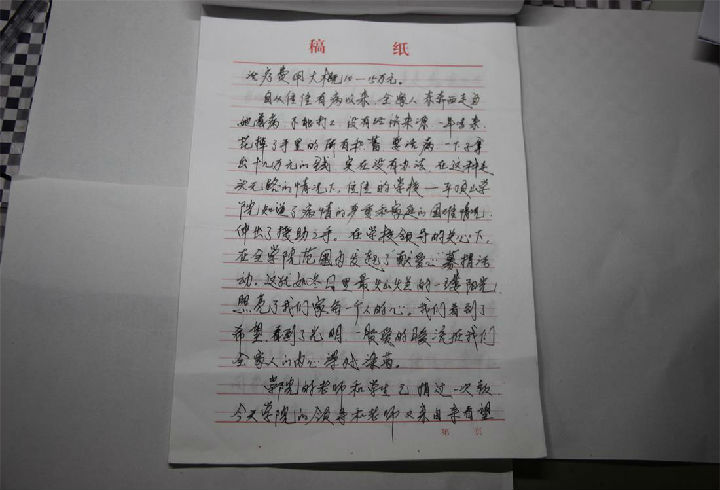 稿 纸
治疗费用大概10—15万元。
自从佳佳有病以来，全家人东奔西走为
她看病，不能打工，没有经济来源，一年多来，
花掉了手里的所有积蓄，要治病，一下子拿
出十几万元的钱，实在没有办法，在这种走
次无路的情况下，佳佳的学校—平顶山学
院知道了病情的严重和家庭的困难情况，
伸出了援助之手。在学校领导的关心下，
在全学院范围内发起了“献爱心”募捐活
动，这就如冬日里最灿烂的一缕阳光，
照亮了我们家每一个人的心。我们看到了
希望，看到了光明，一股股的暖流在我们
全家人的内心
学院的老师和学生已捐过一次款
今天学院的领导和老师又亲自来看望
第 页